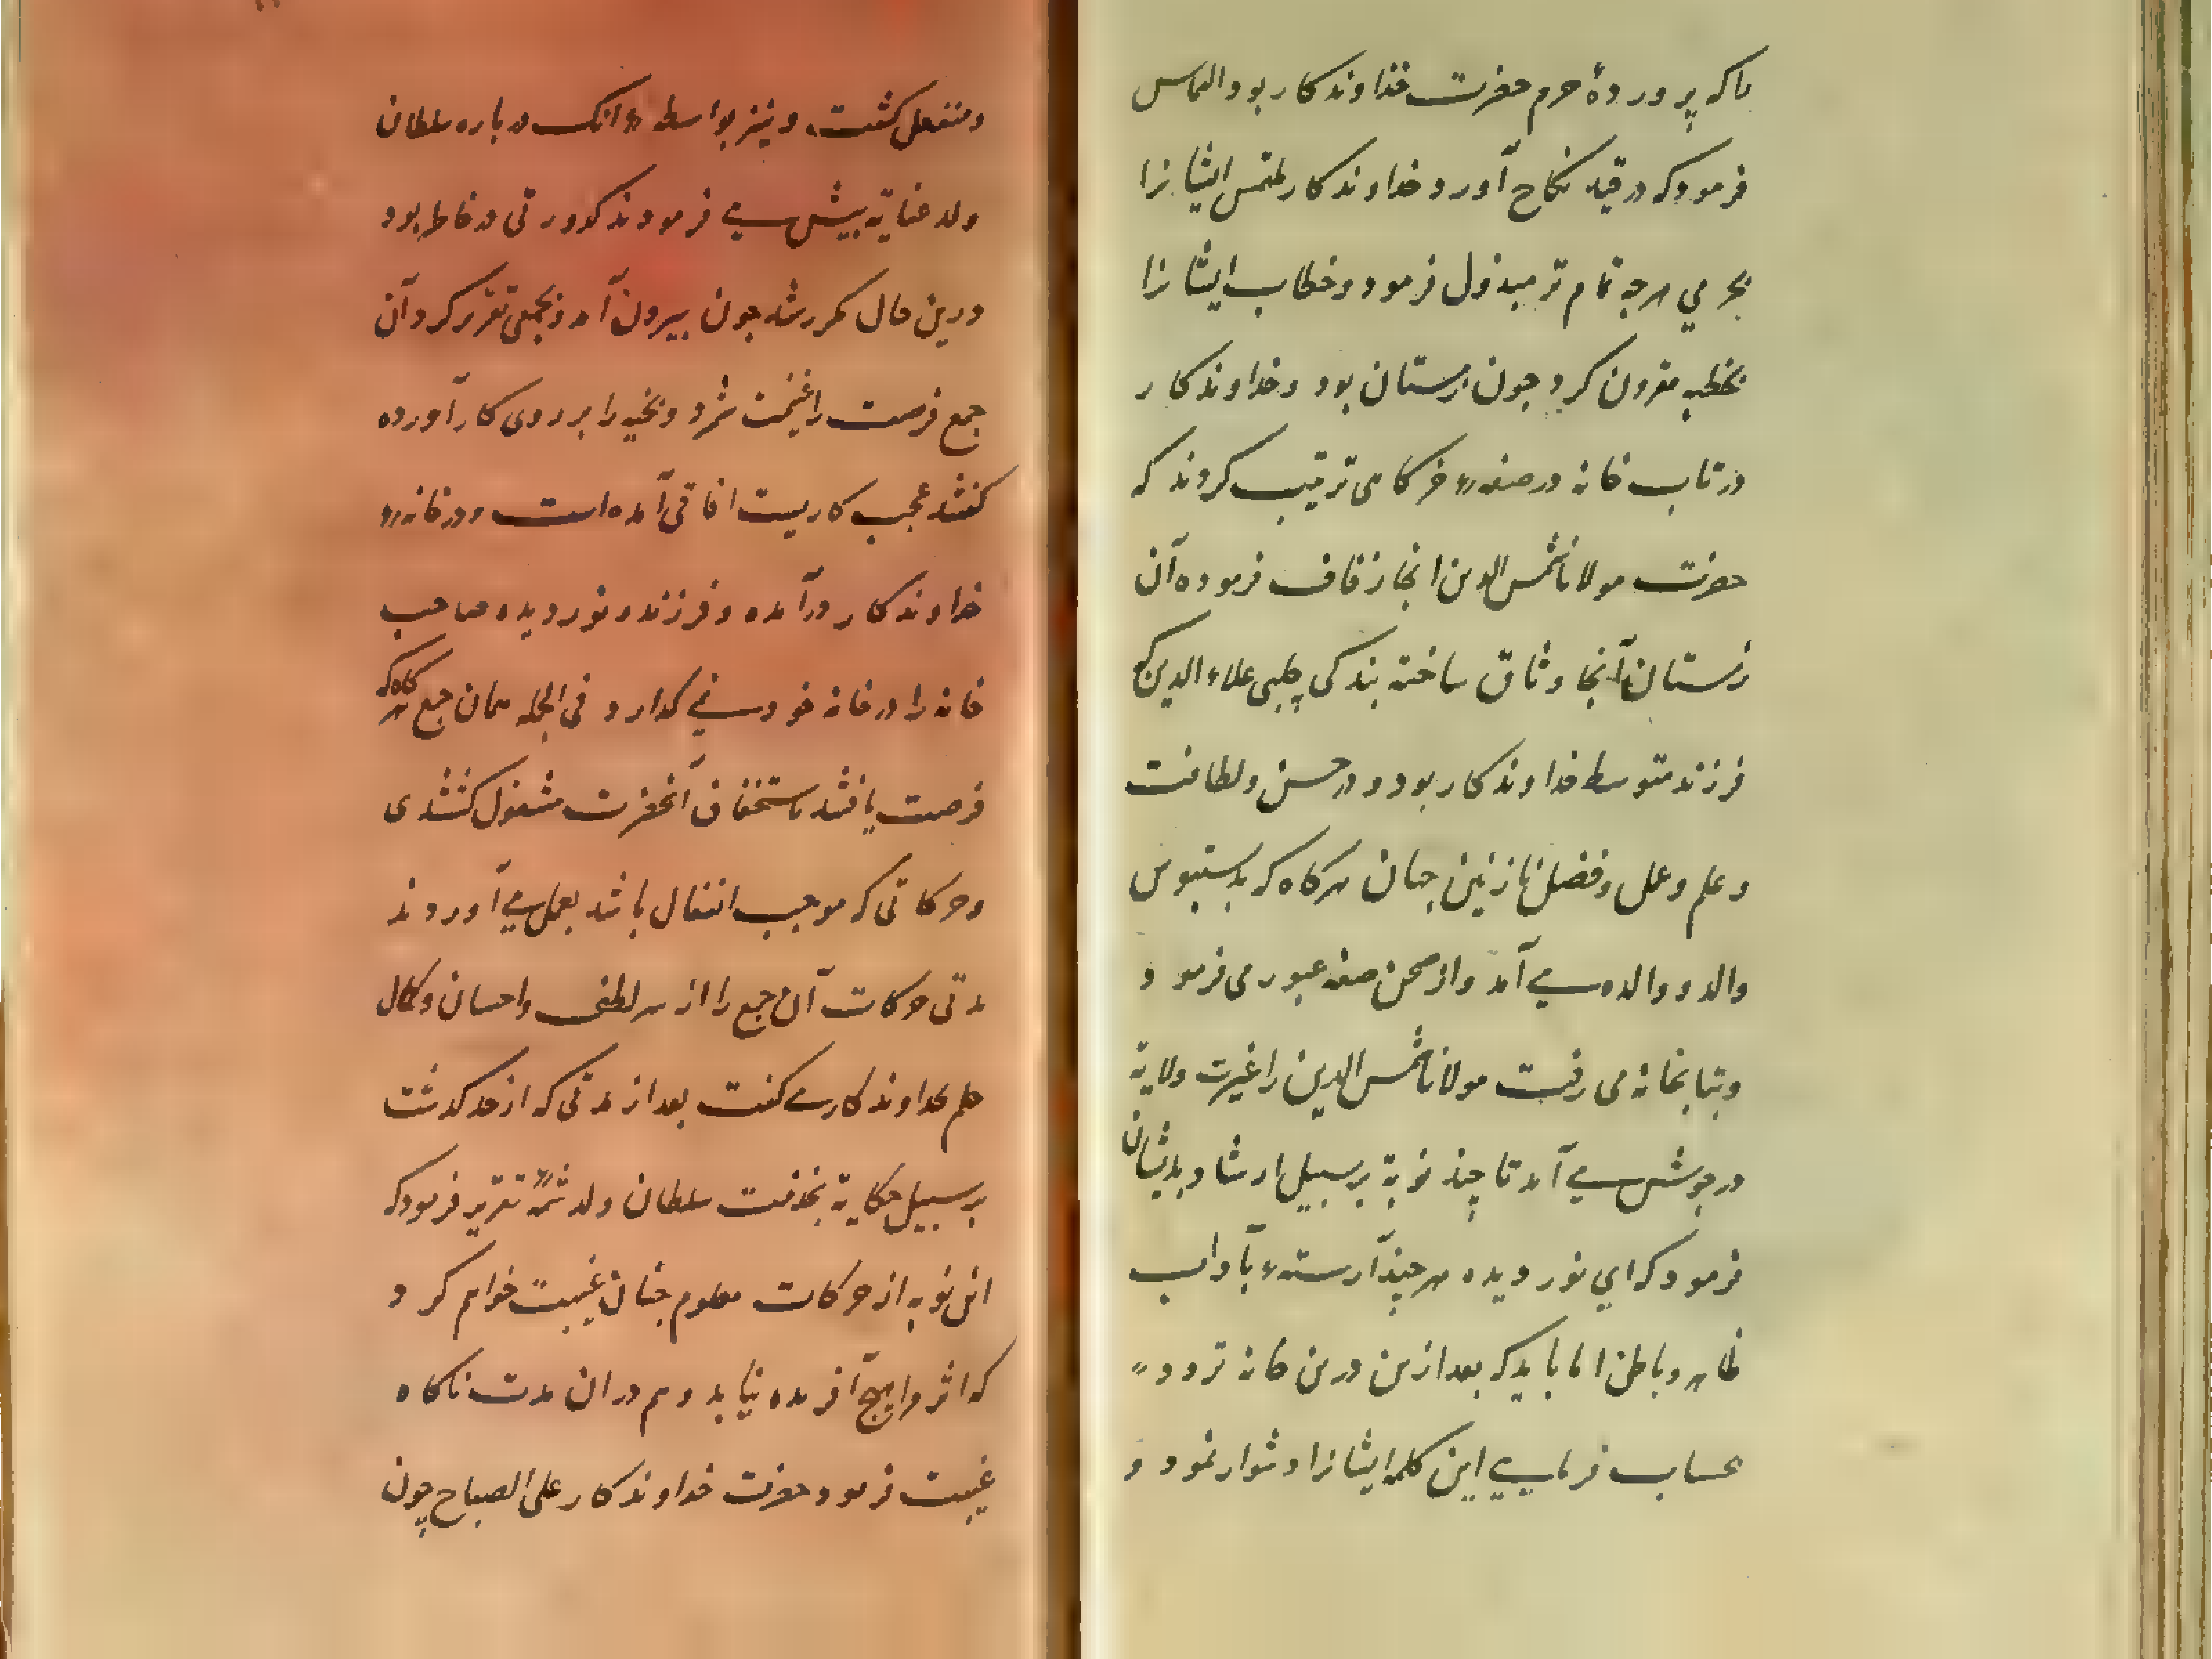 نا که پروردهٔ حرم حضرت خداوندکار بود التماس
فرمود که در قید نکاح آورد خداوندکار ملتمس ایشانرا
بخرمی هرچه تمام تر مبذول فرمود و خطاب ایشانرا
بخطبه مقرون کرد چون زمستان بود و خداوندکار
در تاب خانه در صفهٔ خرکاهی ترتیب کردند که
حضرت مولانا شمس الدین انجا زفاف فرموده آن
زمستان آنجا وثاق ساخته بندکی چلبی علاء الدین که
فرزند متوسط خداوندکار بود و در حسن و لطافت
و علم و عمل و فضل نازنین جهان هرکاه که بدستبوس
والد و والده می آمد و از صحن صفه عبور می فرمود
و بتابخانه می رفت مولانا شمس الدین را غیرت ولایة
در جوش می آمد تا چند نوبة بر سبیل ارشاد بدیشان
فرمود که ای نور دیده هر چند آراستهء بآداب
ظاهر و باطن اما باید که بعد ازین درین خانه تردد
بحساب فرمایی این کلمه ایشانرا دشوار نمود و
و منفعل کشت و نیز بواسطهٔ انک در باره سلطان
ولد عنایة بیش می فرمودند کدورتی در خاطر بود
درین حال مکرر شد چون بیرون آمد و بجمعی تقریر کرد آن
جمع فرصت را غنیمت شمرد و بخیه را بر روی کار آورده
کفتند عجب کاریست افاقی آمده است و در خانهٔ
خداوندکار درآمده و فرزند و نور دیده صاحب
خانه را در خانه خود نمی کذارد فی الجمله همان جمع هرکاه که
فرصت یافتند باستخفاف آنحضرت مشغول کشتندی
و حرکاتی که موجب انفعال باشد بعمل می آوردند
مدتی حرکات آن جمع را از سر لطف و احسان و کمال
حلم بخداوندکار می کفت بعد از مدتی که از حد کذشت
بر سبیل حکایة بخدمت سلطان ولد شمهٔ تقریر فرمود که
این نوبه از حرکات معلوم چنان غیبت خواهم کرد
که اثر مرا هیچ آفریده نیابد و هم در ان مدت ناکاه
غیبت فرمود حضرت خداوندکار علی الصباح چون